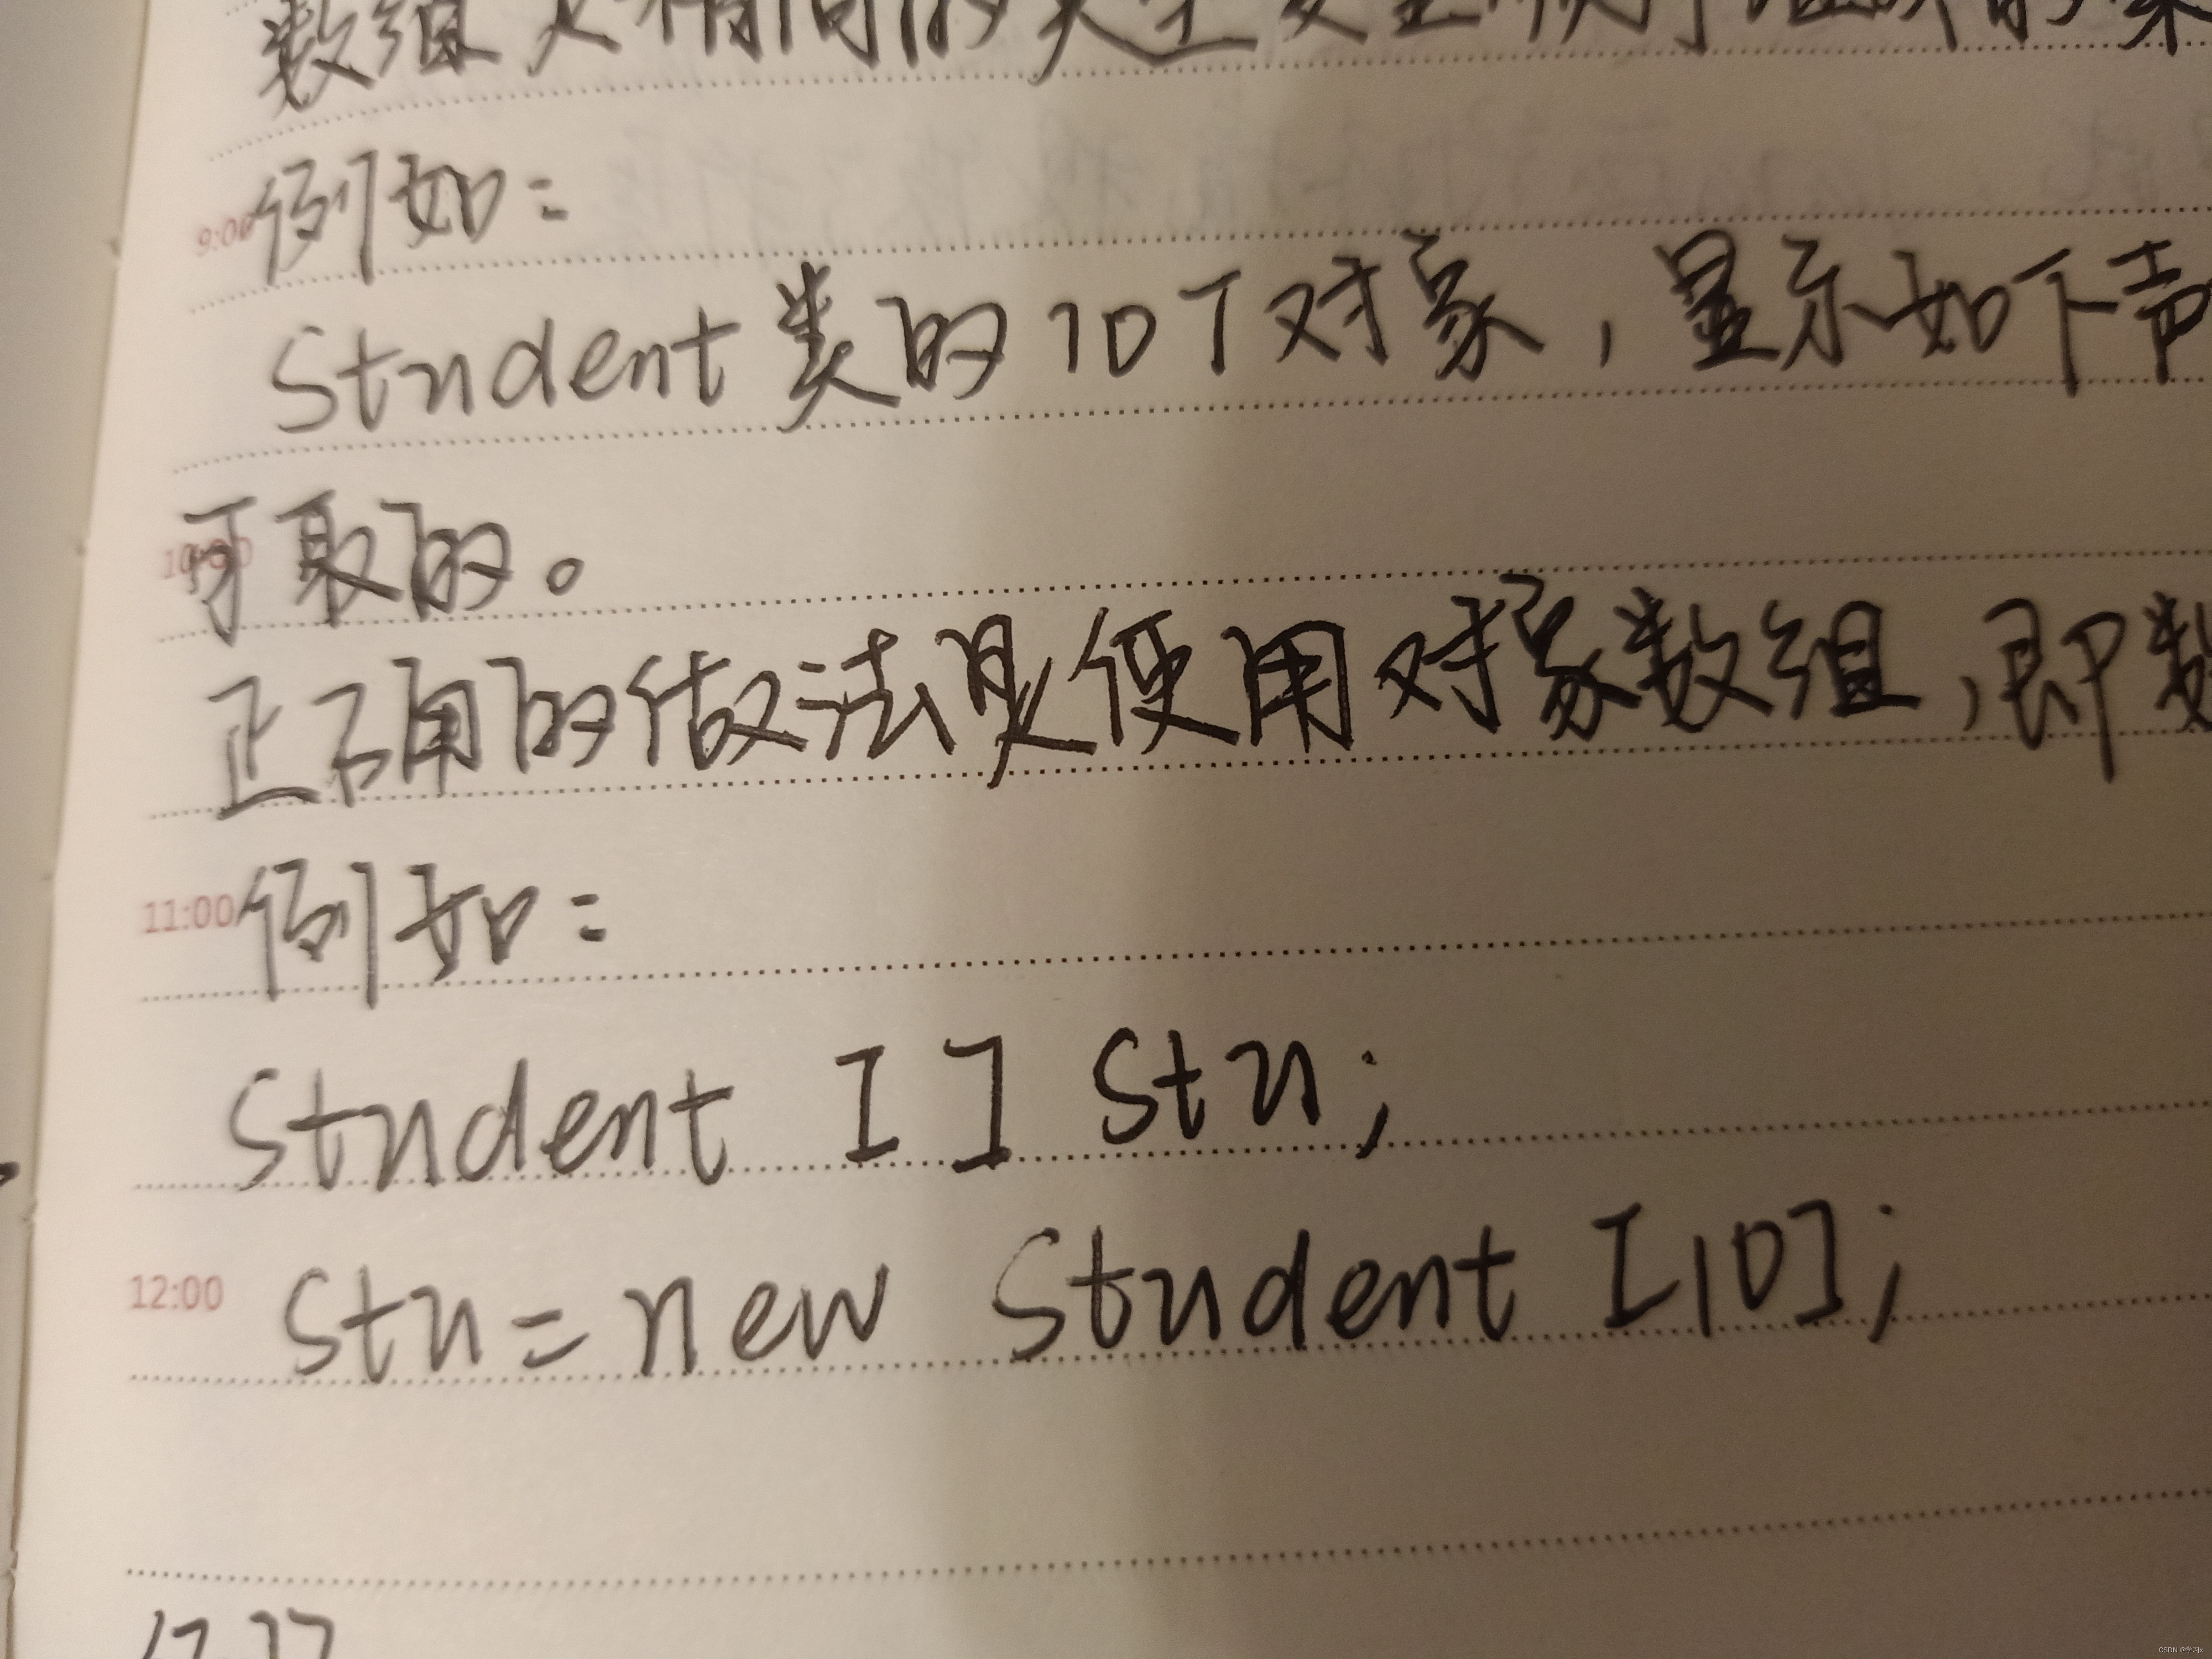 数组是相同的类型变量顺序组成的集
9:00 例如:
Student类的10个对象,显示如下声
10:00 可取的。
正确的做法是使用对象数组,即数
11:00 例如:
Student [] stu;
12:00 stu=new Student [10];
CSDN @学习x